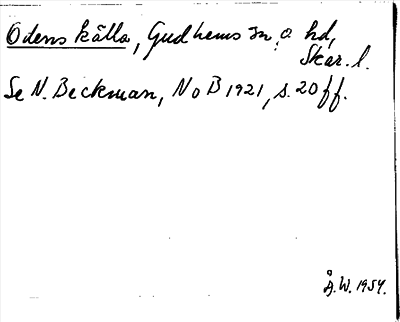 Odens källa, Gudhems sn. o. hd,
Skar. l.
Se N. Beckman, NoB 1921, s. 20 ff.
Å.W. 1954.